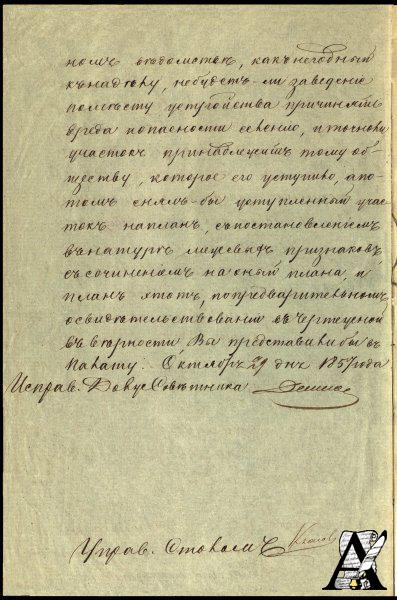 номъ вѣдомствѣ, какъ негодный
къ надѣлу, не будетъ-ли заведенiе
по мѣсту устройства причинять
вреда и опасности селенiю, и точно-ли
участокъ принадлежитъ тому об-
ществу, которое его уступило, а по-
томъ снялъ-бы уступленный учас-
токъ на планъ, съ постановленiемъ
въ натурѣ межевыхъ признаковъ,
съ сочиненiемъ на оный плана, и
планъ этотъ, по предварительномъ
освидѣтельствованiи въ Чертежной
въ вѣрности Вы представили бы въ
Палату. Октябрь 29 дня 1857 года
Исправ. Долж. Совѣтника
Управ. Столомъ
А